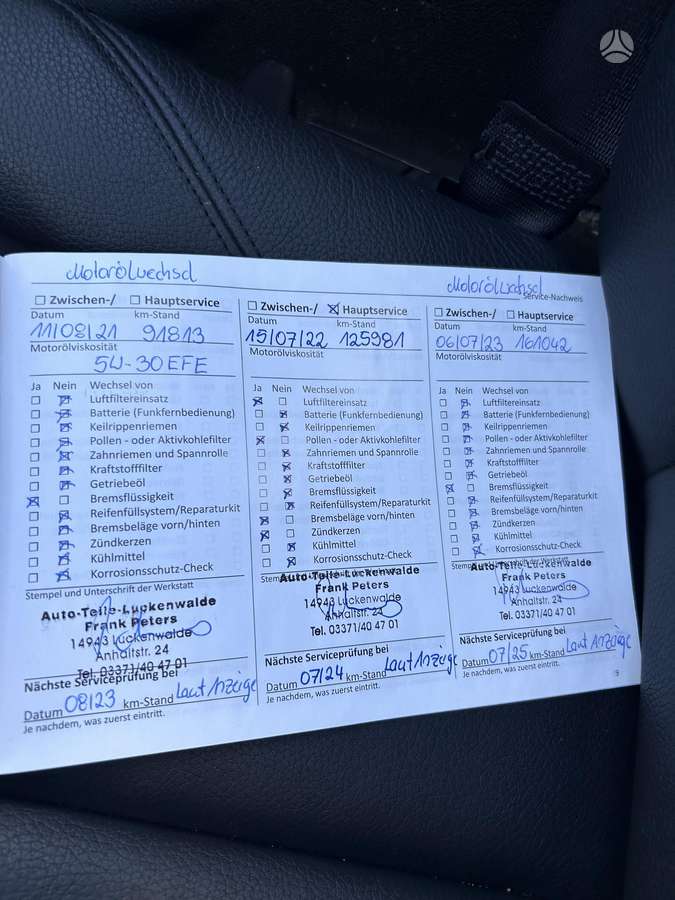 Motorölwechsel
☐ Zwischen-/ ☐ Hauptservice
Datum km-Stand
11/08/21 91813
Motorölviskosität
5W-30 EFE
Ja Nein Wechsel von
☐ ☒ Luftfiltereinsatz
☐ ☒ Batterie (Funkfernbedienung)
☐ ☒ Keilrippenriemen
☐ ☒ Pollen - oder Aktivkohlefilter
☐ ☒ Zahnriemen und Spannrolle
☐ ☒ Kraftstofffilter
☐ ☒ Getriebeöl
☒ ☐ Bremsflüssigkeit
☐ ☒ Reifenfüllsystem/Reparaturkit
☐ ☒ Bremsbeläge vorn/hinten
☐ ☒ Zündkerzen
☐ ☒ Kühlmittel
☐ ☒ Korrosionsschutz-Check
Stempel und Unterschrift der Werkstatt
Auto-Teile-Luckenwalde
Frank Peters
14943 Luckenwalde
Anhaltstr. 24
Tel. 03371/40 47 01
Nächste Serviceprüfung bei
Datum 08/23 km-Stand Laut Anzeige
Je nachdem, was zuerst eintritt.
☐ Zwischen-/ ☒ Hauptservice
Datum km-Stand
15/07/22 125981
Motorölviskosität
Ja Nein Wechsel von
☒ ☐ Luftfiltereinsatz
☐ ☒ Batterie (Funkfernbedienung)
☐ ☒ Keilrippenriemen
☒ ☐ Pollen - oder Aktivkohlefilter
☐ ☒ Zahnriemen und Spannrolle
☐ ☒ Kraftstofffilter
☐ ☒ Getriebeöl
☐ ☒ Bremsflüssigkeit
☐ ☒ Reifenfüllsystem/Reparaturkit
☒ ☐ Bremsbeläge vorn/hinten
☒ ☐ Zündkerzen
☐ ☒ Kühlmittel
☐ ☒ Korrosionsschutz-Check
Auto-Teile-Luckenwalde
Frank Peters
14943 Luckenwalde
Anhaltstr. 24
Tel. 03371/40 47 01
Nächste Serviceprüfung bei
Datum 07/24 km-Stand Laut Anzeige
Je nachdem, was zuerst eintritt.
Motorölwechsel
Service-Nachweis
☐ Zwischen-/ ☐ Hauptservice
Datum km-Stand
06/07/23 161042
Motorölviskosität
Ja Nein Wechsel von
☐ ☒ Luftfiltereinsatz
☐ ☒ Batterie (Funkfernbedienung)
☐ ☒ Keilrippenriemen
☐ ☒ Pollen - oder Aktivkohlefilter
☐ ☒ Zahnriemen und Spannrolle
☐ ☒ Kraftstofffilter
☐ ☒ Getriebeöl
☒ ☐ Bremsflüssigkeit
☐ ☒ Reifenfüllsystem/Reparaturkit
☐ ☒ Bremsbeläge vorn/hinten
☐ ☒ Zündkerzen
☐ ☒ Kühlmittel
☐ ☒ Korrosionsschutz-Check
Auto-Teile-Luckenwalde
Frank Peters
14943 Luckenwalde
Anhaltstr. 24
Tel. 03371/40 47 01
Nächste Serviceprüfung bei
Datum 07/25 km-Stand Laut Anzeige
Je nachdem, was zuerst eintritt.